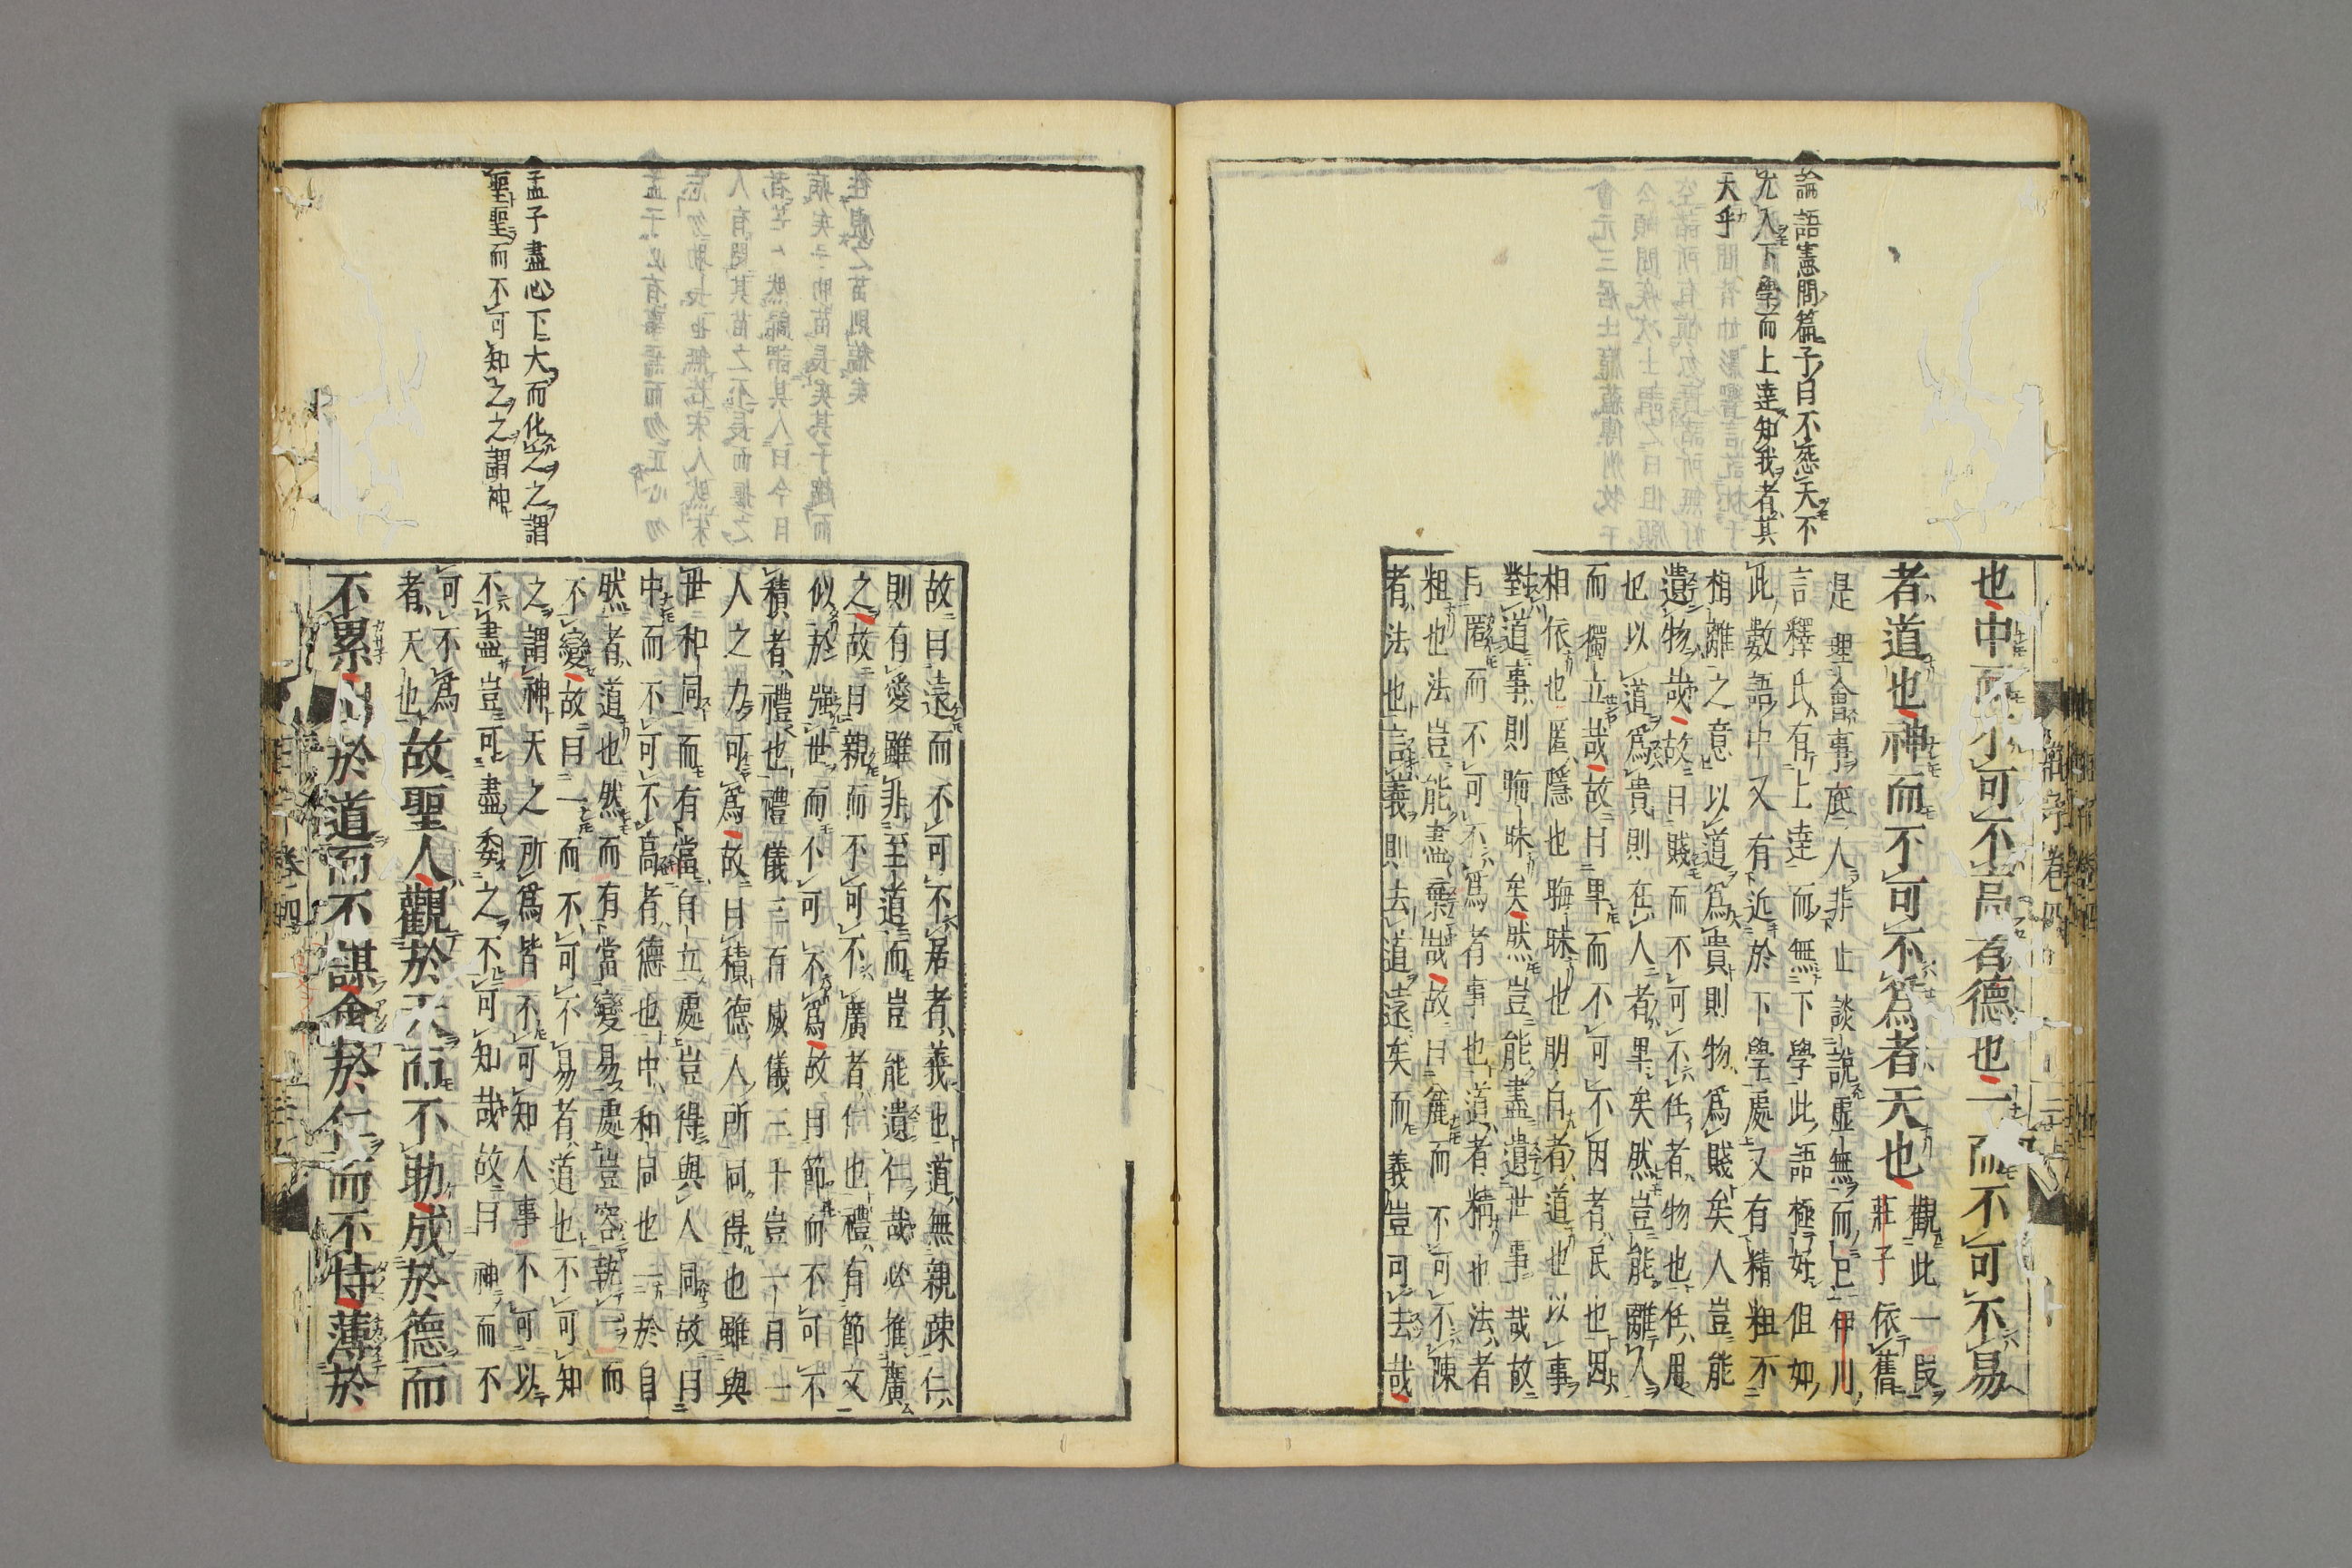 論語憲問篇子曰不怨天不
尤人下學而上達知我者其
天乎
也中而不可不高者德也一而不可不易
者道也神而不可不為者天也
觀此一段
莊子依舊
是理會事底人非止談說虛無而已伊川
言釋氏有上達而無下學此語極好但如
此數語中又有近於下學處又有精粗不
相離之意以道為貴則物為賤矣人豈能
遺物哉故曰賤而不可不任者物也任用
也以道為貴則在人者卑矣然豈能離人
而獨立哉故曰卑而不可不因者民也因
相依也匿隱也晦昧也明白者道也以事
對道事則晦昧矣然豈能盡遺世事哉故
曰匿而不可不為者事也道者精也法者
粗也法豈能盡棄哉故曰麤而不可不陳
者法也言義則去道遠矣而義豈可去哉
故曰遠而不可不居者義也道無親疎仁
則有愛雖非至道而豈能遺仁哉必推廣
之故曰親而不可不廣者仁也禮有節文
似於強世而不可不為故曰節而不可不
積者禮也禮儀三百威儀三千豈一日一
人之力可為故曰積德人所同得也雖與
世和同而有當自立處豈得與人同故曰
中而不可不高者德也中和同也一於自
然者道也然而有當變易處豈容執一而
不變故曰一而不可不易者道也不可知
之謂神天之所為皆不可知人事不可以
不盡豈可盡委之不可知哉故曰神而不
可不為
者天也故聖人觀於天而不助成於德而
不累出於道而不謀會於仁而不恃薄於
孟子盡心下大而化之之謂
聖聖而不可知之之謂神